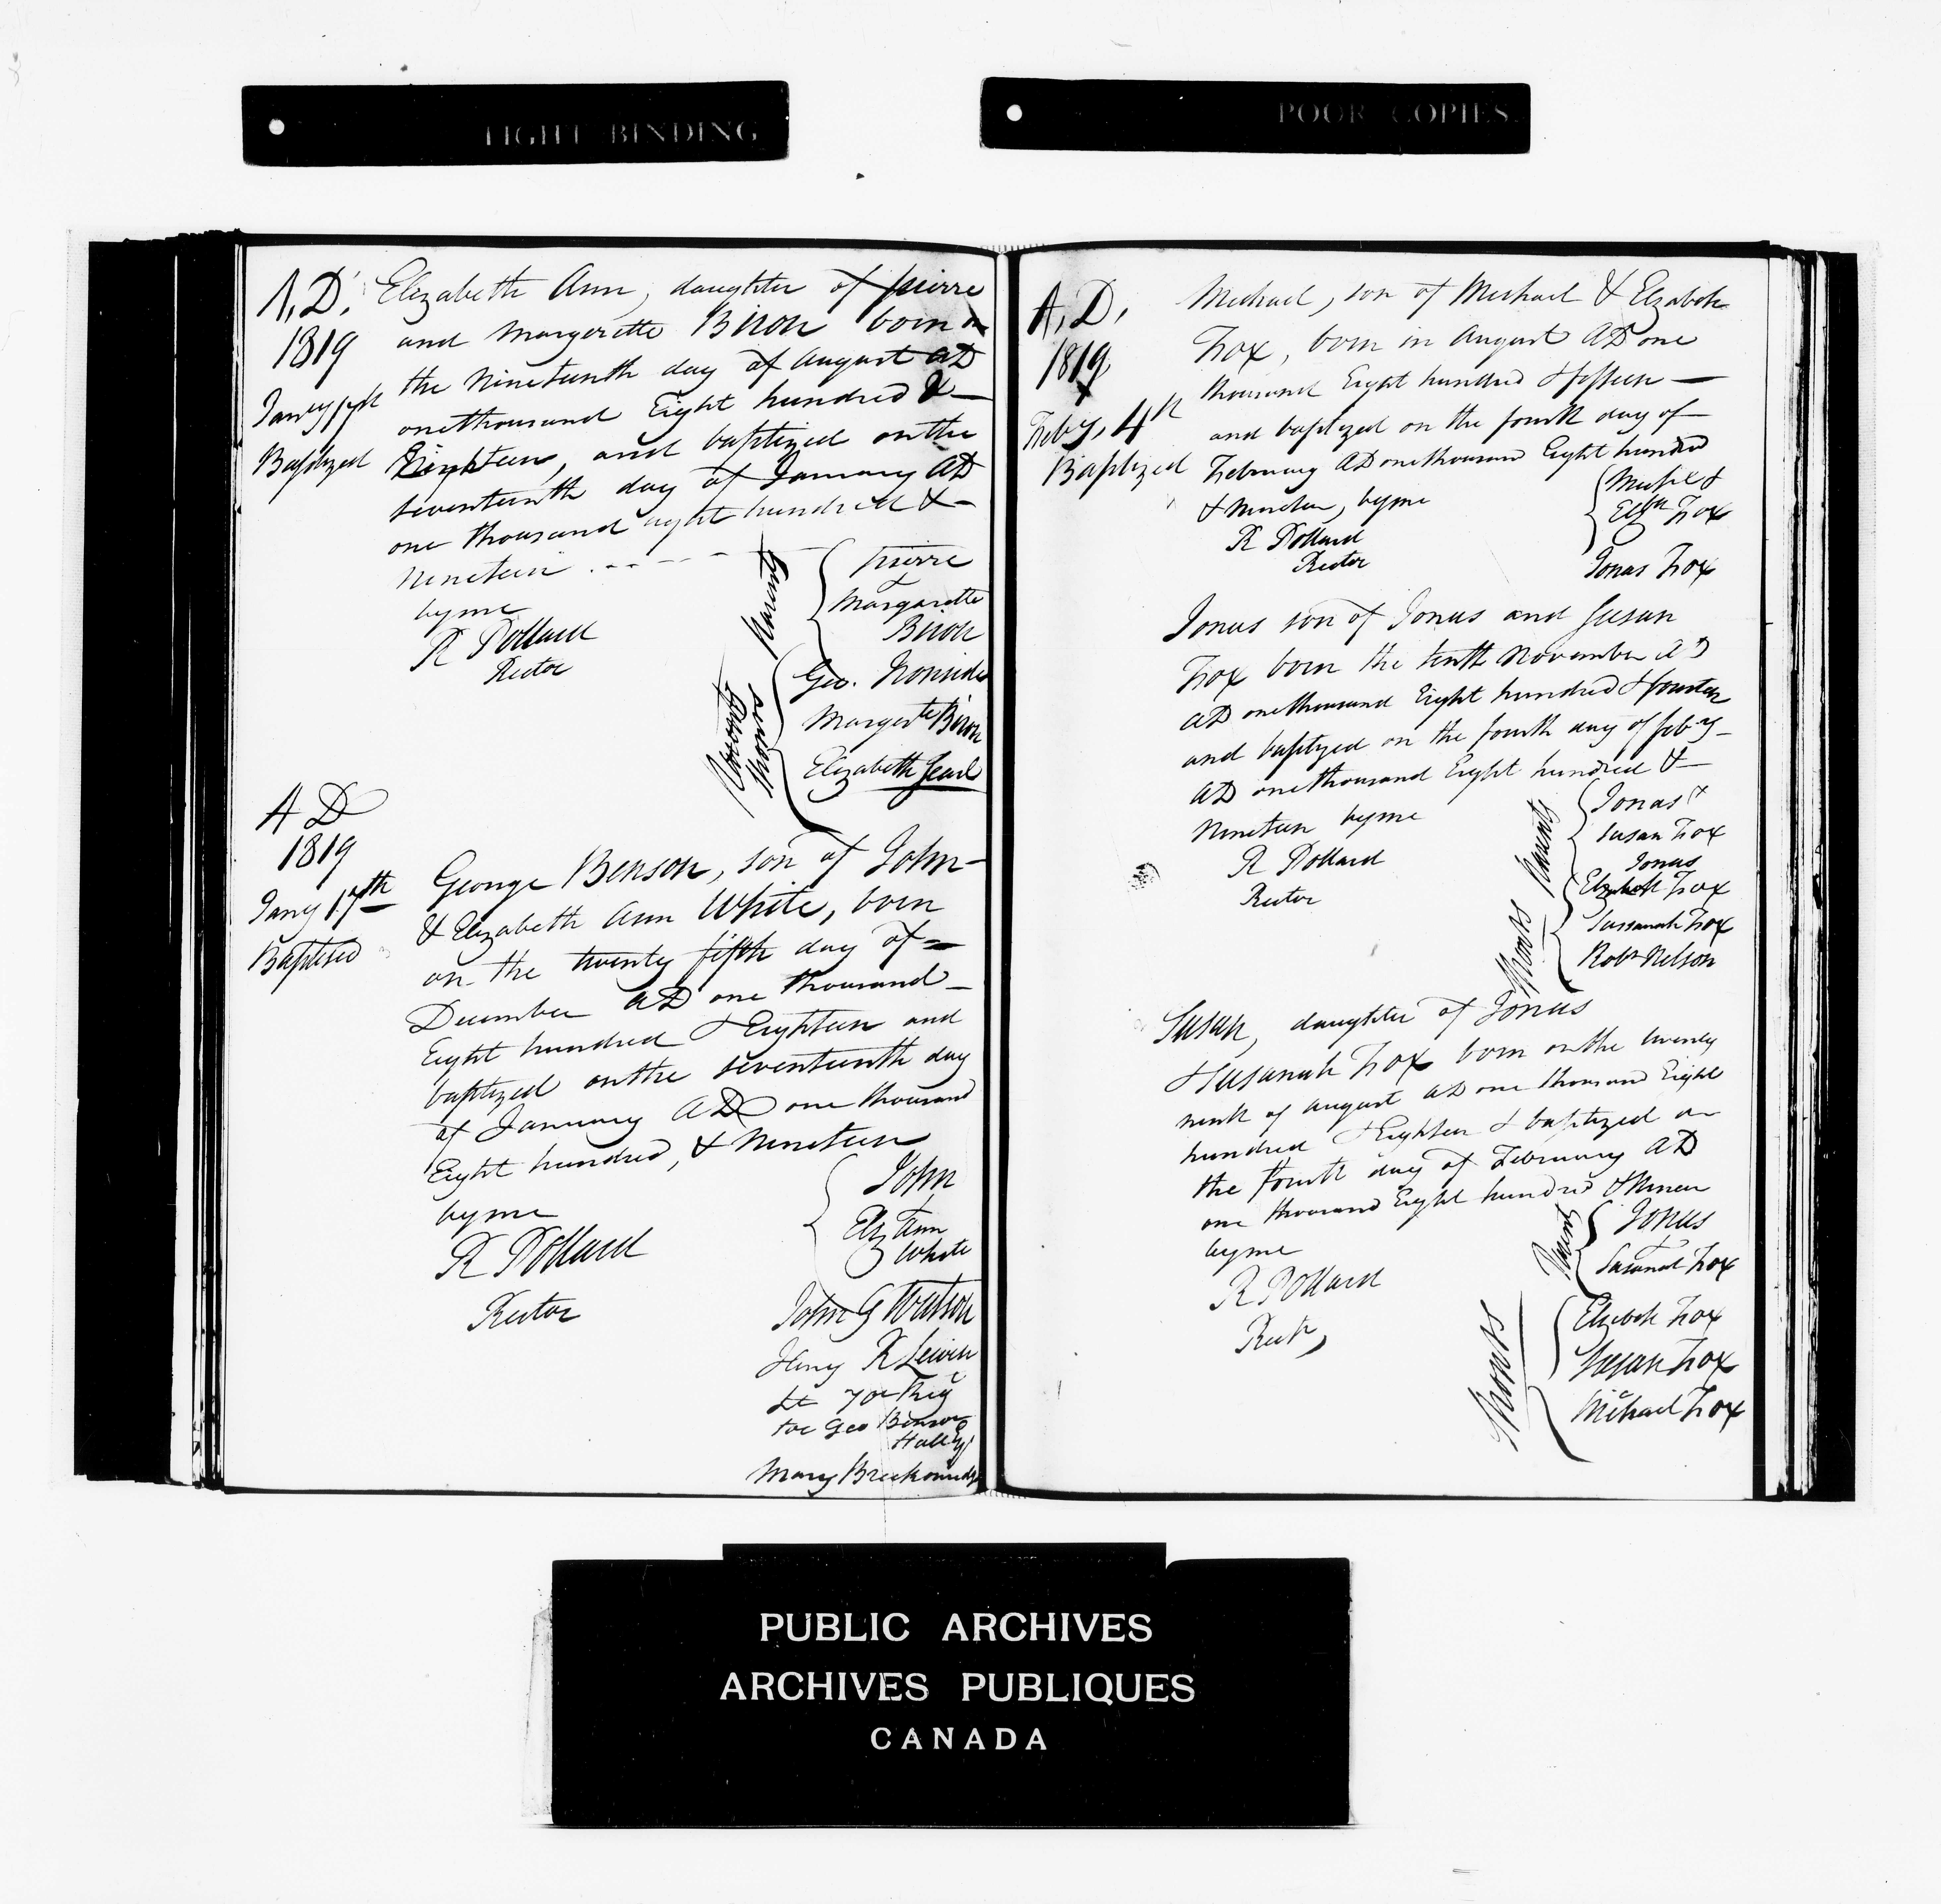 TIGHT BINDING
POOR COPIES.
A.D.
1819
Jany 17th
Baptized
Elizabeth Ann, daughter of pierre
and Margerette Biron born on
the Nineteenth day of August AD
one thousand Eight hundred &
Eighteen, and baptized on the
seventeenth day of January AD
one thousand eight hundred &
Nineteen
by me
R Pollard
Rector
Parents
pierre
Margarette
Biron
Sponsors
Geo. Ironside
Margerte Biron
Elizabeth Searl
A D
1819
Jany 17th
Baptised
George Benson, son of John
& Elizabeth Ann White, born
on the twenty fifth day of
December AD one thousand
Eight hundred & Eighteen and
baptized on the seventeenth day
of January AD one thousand
Eight hundred, & Nineteen
by me
R Pollard
Rector
John
Elz Ann
White
John G Watson
Heny R Lewin
Lt 70th Reg
for Geo Benson
Hall Esq
Mary Breckonridge
A.D.
1819
Feby. 4th
Baptized
Michael, son of Michael & Elizabeth
Fox, born in August AD one
thousand Eight hundred & fifteen
and baptized on the fourth day of
February AD one thousand Eight hundred
& nineteen, by me
R Pollard
Rector
Michl &
Elizth Fox
Jonas Fox
Jonas son of Jonas and Susan
Fox born the tenth November AD
AD one thousand Eight hundred & fourteen
and baptyzed on the fourth day of feb-y
AD one thousand Eight hundred &
Nineteen by me
R Pollard
Rector
Parents
Jonas &
Susan Fox
Sponsors
Jonas
Elizabeth Fox
Sussanah Fox
Robt Nelson
Susan, daughter of Jonas
& Susanah Fox born on the twenty
ninth of August AD one thousand Eight
hundred & Eighteen & baptized on
the fourth day of February AD
one thousand Eight hundred & Nineteen
by me
R Pollard
Rectr
Parents
Jonas
Susanah Fox
Sponsors
Elizabeth Fox
Susan Fox
Michael Fox
PUBLIC ARCHIVES
ARCHIVES PUBLIQUES
CANADA